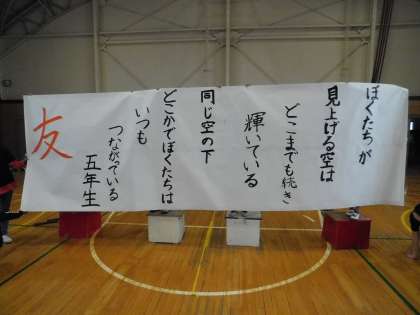 ぼくたちが
見上げる空は
どこまでも続き
輝いている
同じ空の下
どこかでぼくたちは
いつも
つながっている
五年生
友